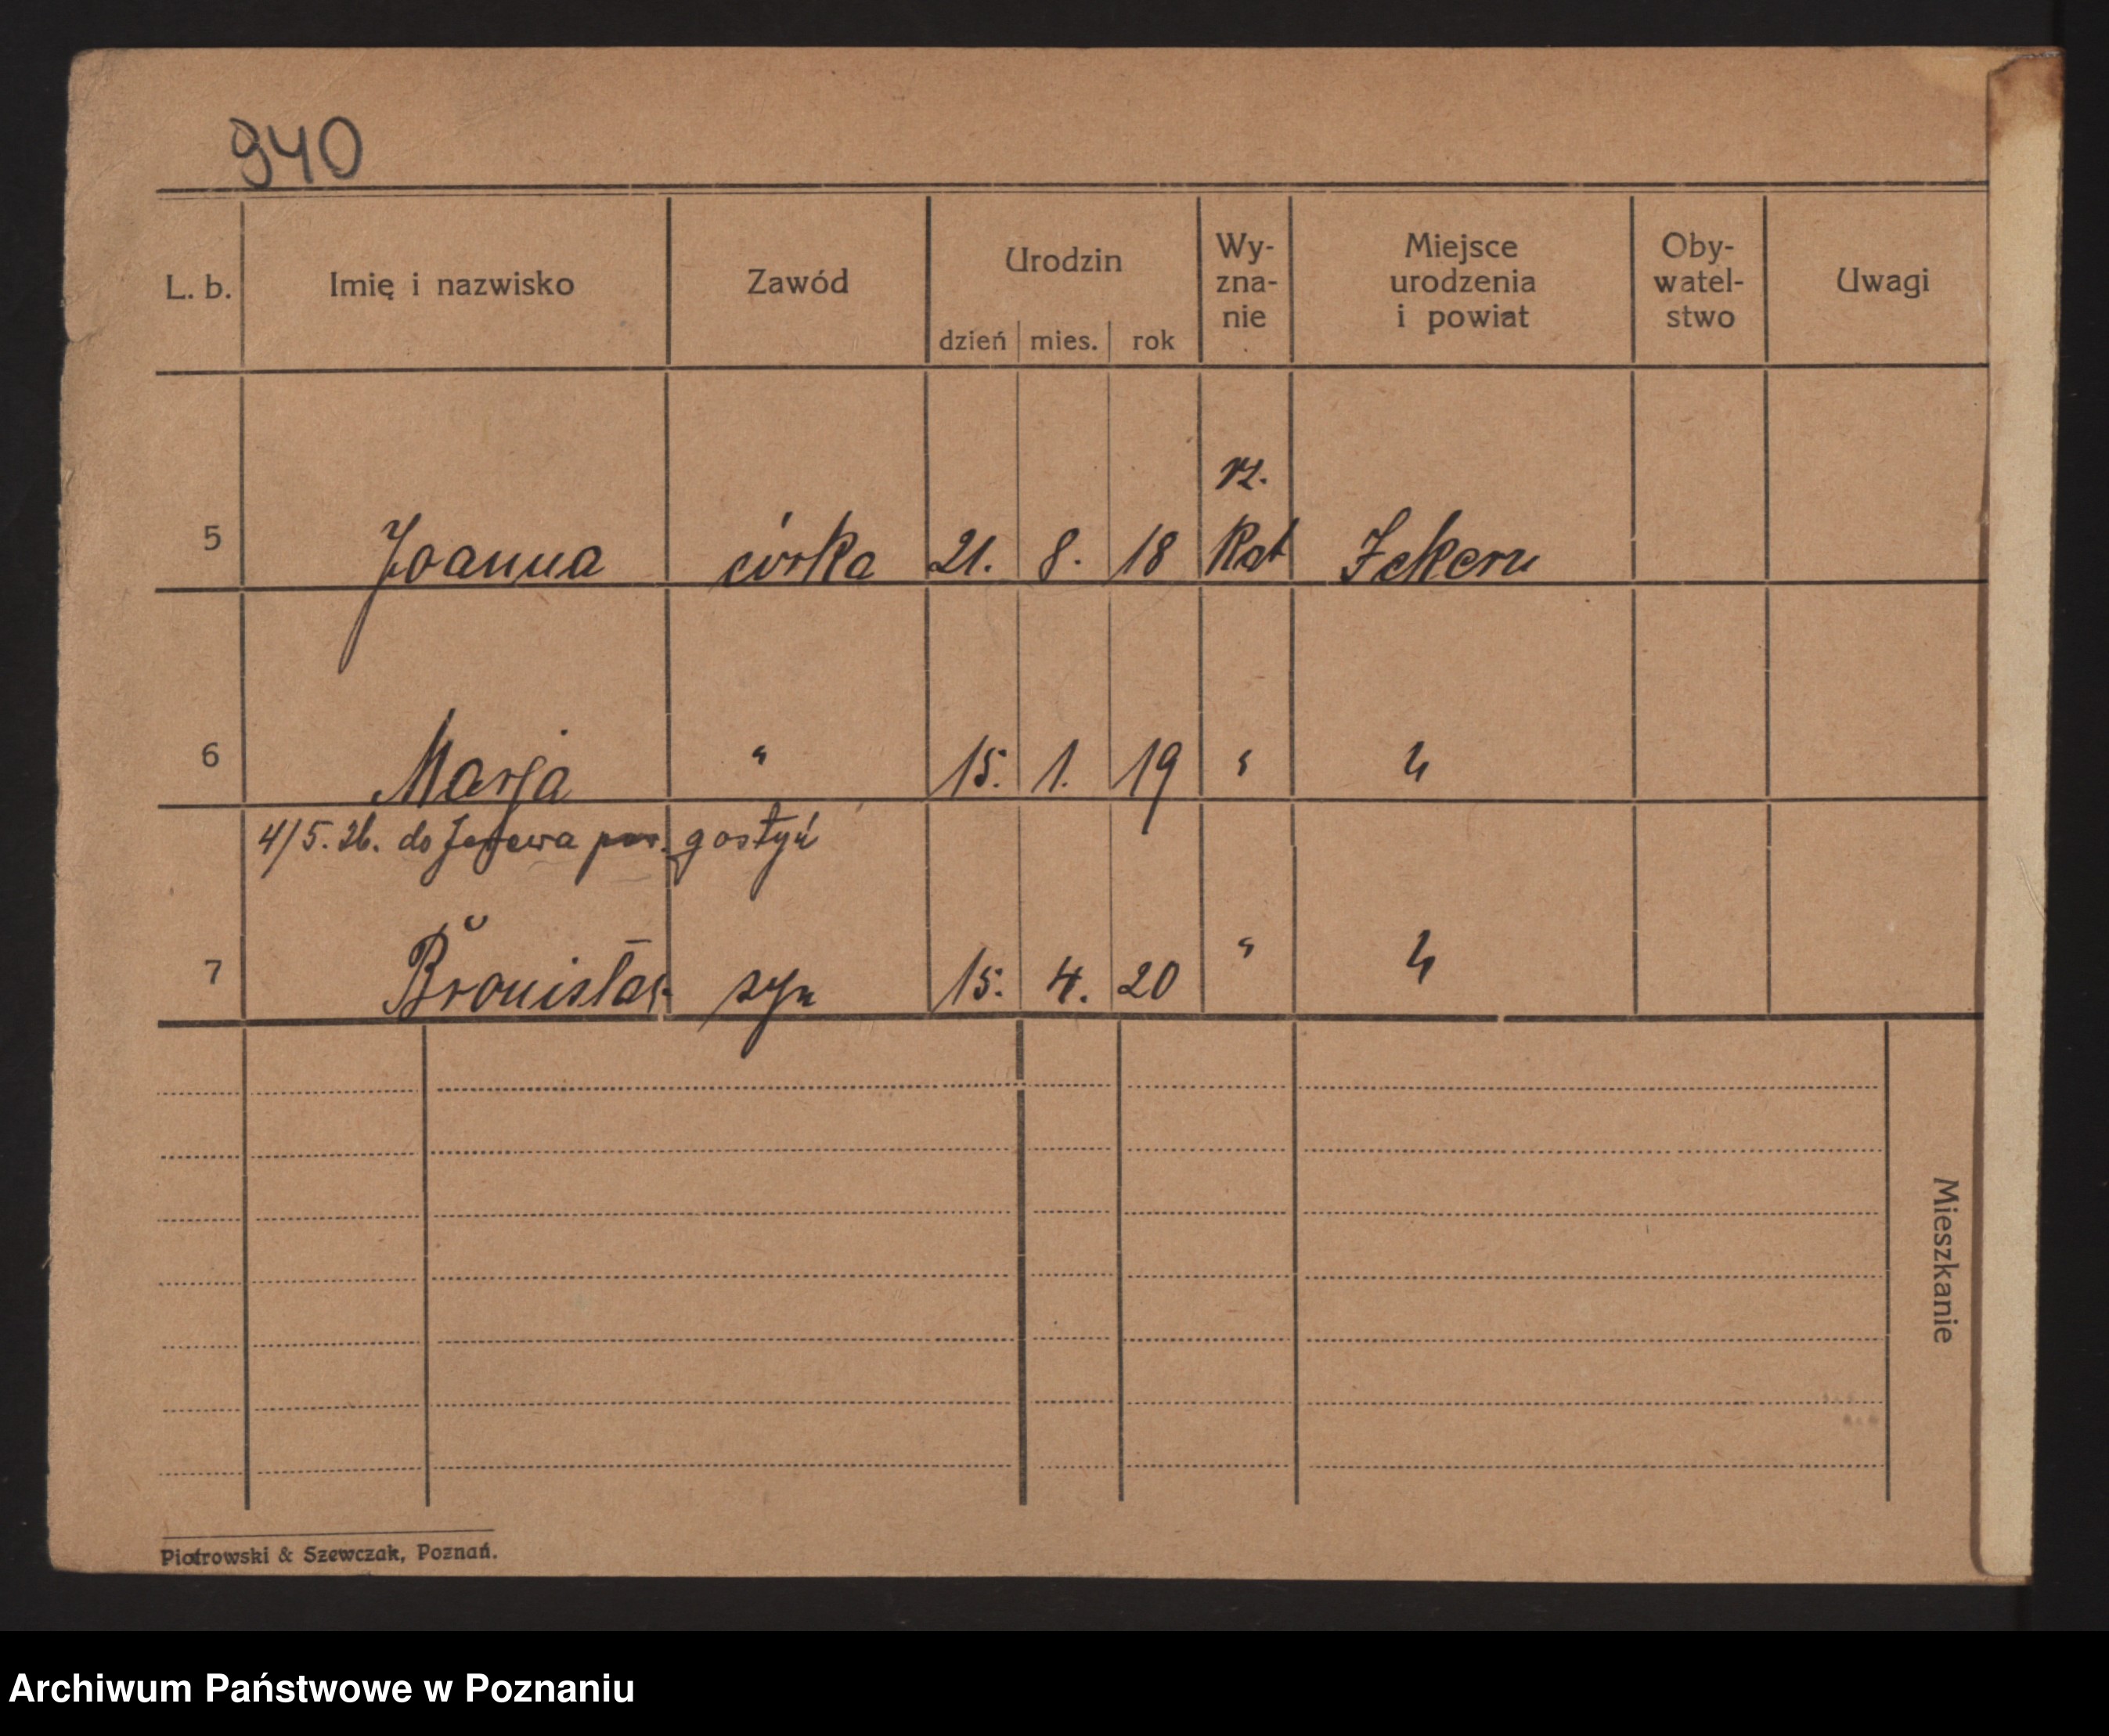 940
L. b. Imię i nazwisko Zawód Urodzin dzień mies. rok Wy-zna-nie Miejsce urodzenia i powiat Oby-watel-stwo Uwagi
rz.
5 Joanna córka 21. 8. 18 Kat
6 Marja " 15. 1. 19 " "
4/5. 26. do Jeżewa pow. gostyń
7 Bronisław syn 15. 4. 20 " "
Mieszkanie
Piotrowski & Szewczak, Poznań.
Archiwum Państwowe w Poznaniu